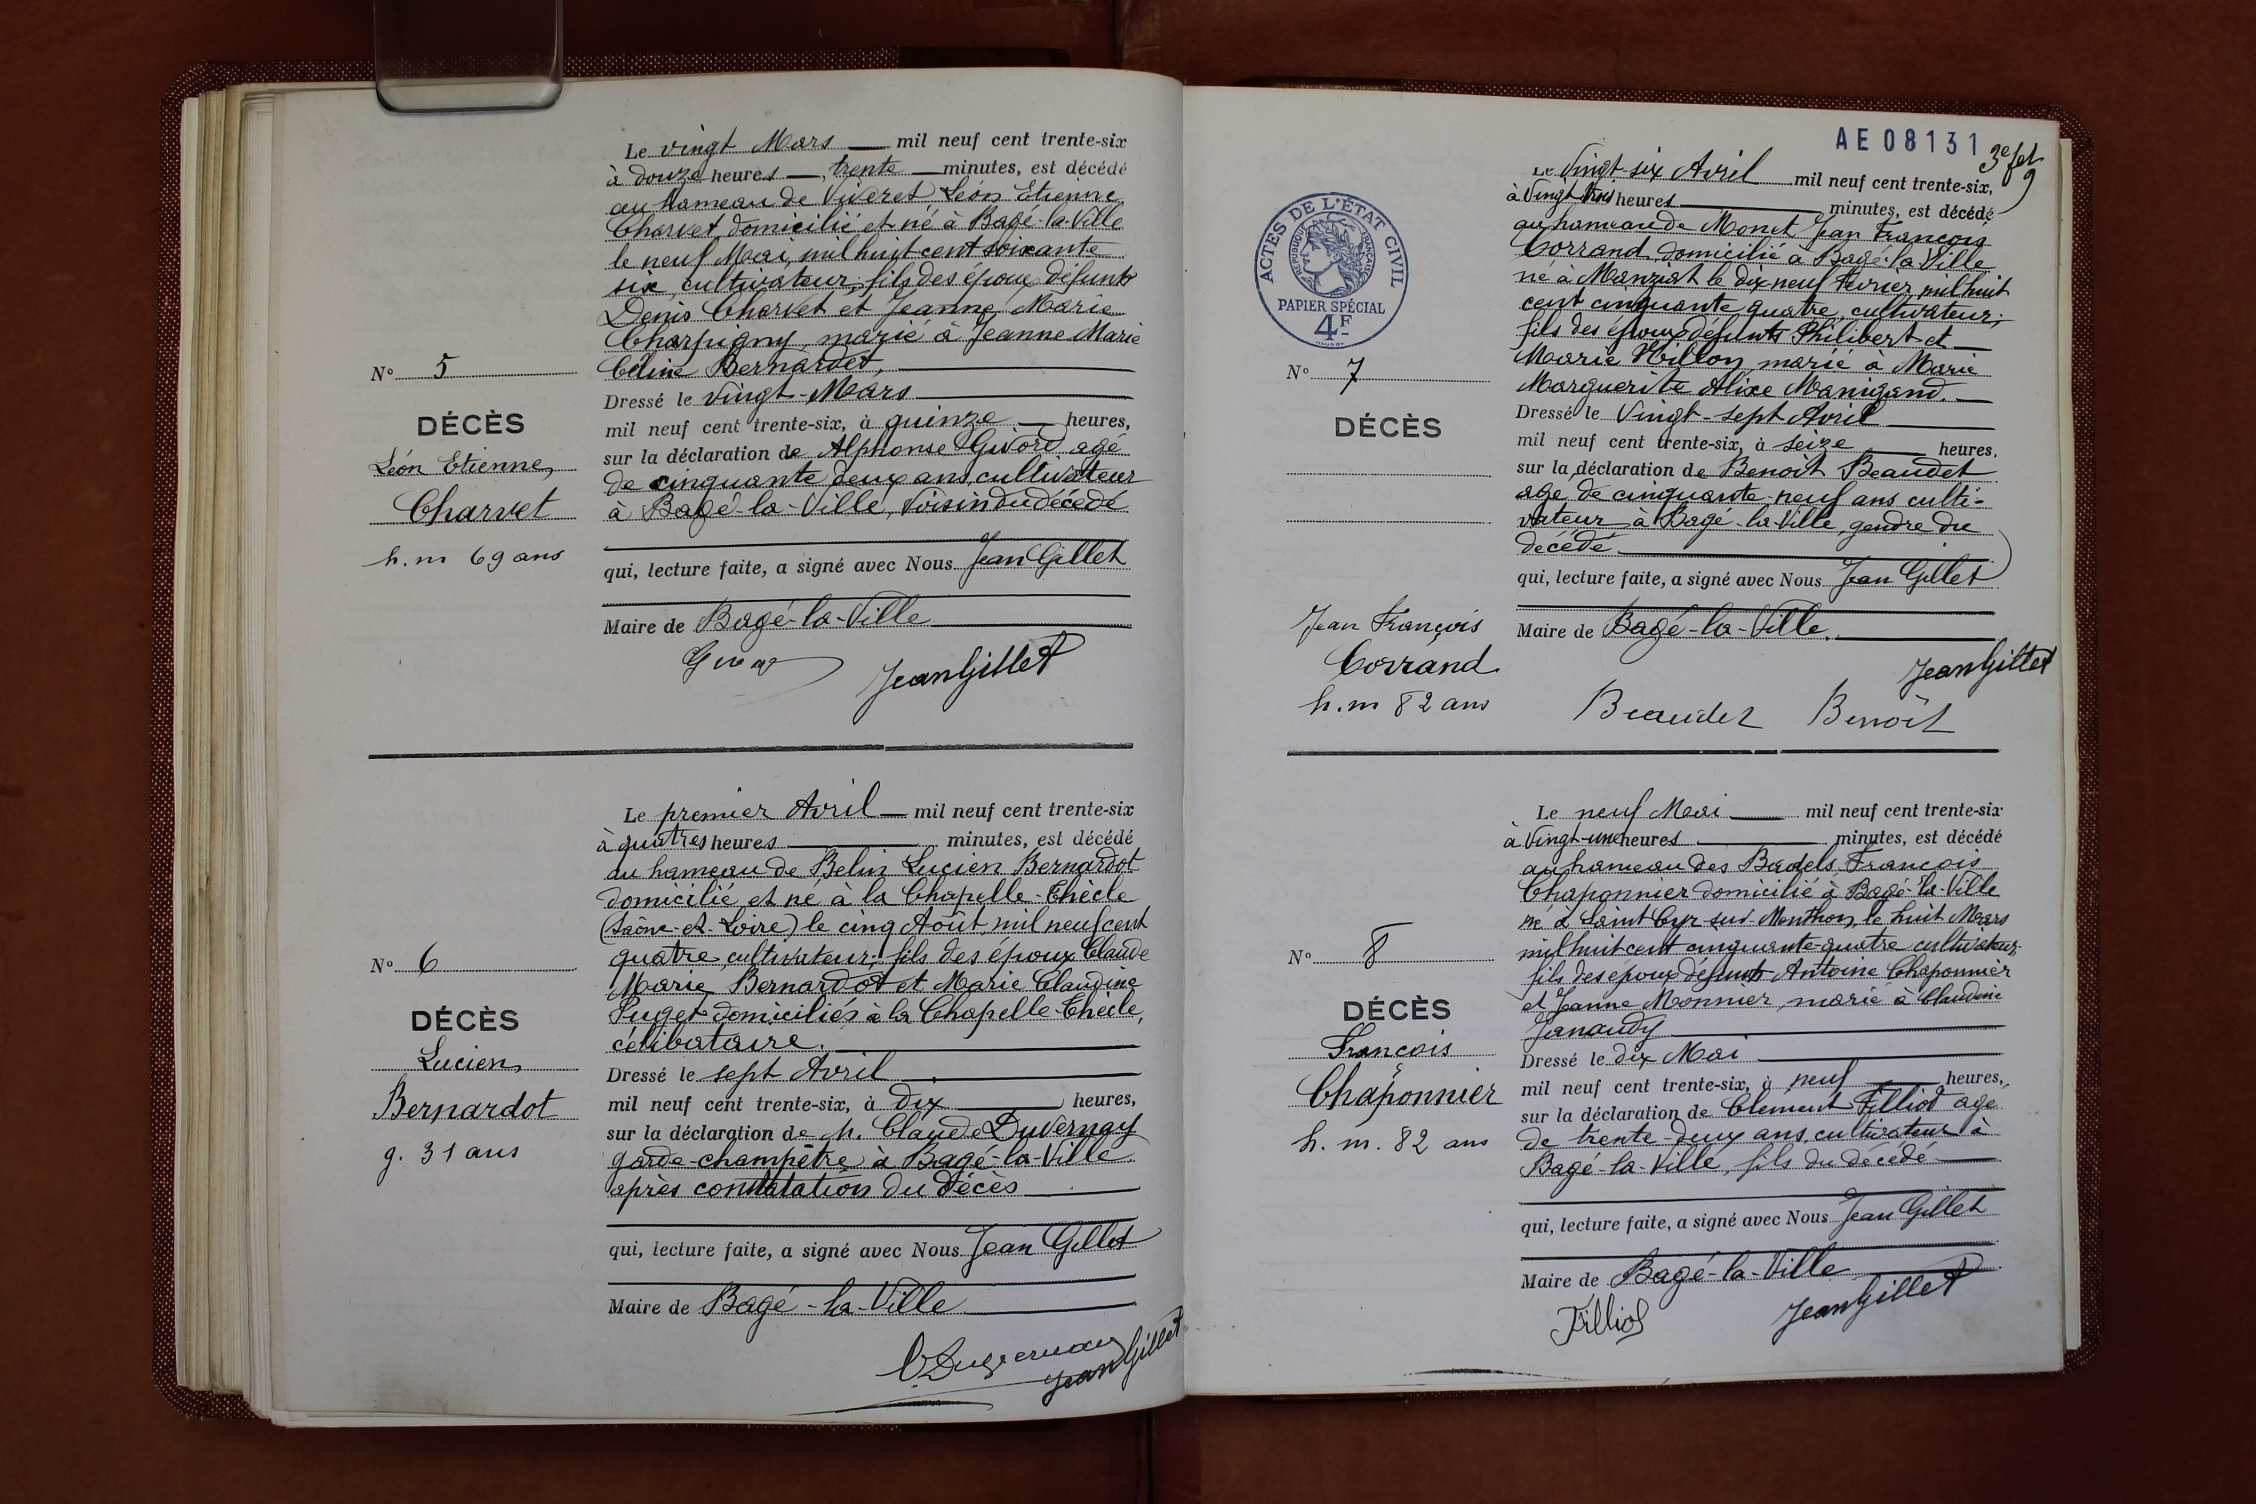 Le vingt Mars mil neuf cent trente-six
à douze heures, trente minutes, est décédé
au hameau de Viveret Léon Etienne
Charvet, domicilié et né à Bagé-la-Ville
le neuf Mai, mil huit cent soixante
six, cultivateur, fils des époux défunts
Denis Charvet et Jeanne Marie
Charpigny, marié à Jeanne Marie
Céline Bernardet,
Dressé le vingt-Mars
mil neuf cent trente-six, à quinze heures,
sur la déclaration de Alphonse Givord agé
de cinquante deux ans, cultivateur
à Bagé-la-Ville, voisin du décédé
qui, lecture faite, a signé avec Nous Jean Gillet
Maire de Bagé-la-Ville
Jean Gillet
N° 5
DÉCÈS
Léon Etienne
Charvet
h. m 69 ans
Le premier Avril mil neuf cent trente-six
à quatres heures minutes, est décédé
au hameau de Belin Lucien Bernardot
domicilié et né à la Chapelle-Thècle
(Saône-et-Loire) le cinq Août, mil neuf cent
quatre, cultivateur, fils des époux Claude
Marie Bernardot et Marie Claudine
Puget domiciliés à la Chapelle-Thècle,
célibataire.
Dressé le sept Avril
mil neuf cent trente-six, à dix heures,
sur la déclaration de M. Claude Duvernay
garde-champêtre à Bagé-la-Ville
après constatation du décès
qui, lecture faite, a signé avec Nous Jean Gillet
Maire de Bagé-la-Ville
C. Duvernay
Jean Gillet
N° 6
DÉCÈS
Lucien
Bernardot
g. 31 ans
AE08131
3e fet
9
ACTES DE L'ÉTAT CIVIL
RÉPUBLIQUE FRANÇAISE
PAPIER SPÉCIAL
4F
Le Vingt-six Avril mil neuf cent trente-six,
à Vingt trois heures minutes, est décédé
au hameau de Monet Jean François
Corrand domicilié à Bagé-la-Ville
né à Manziat le dix neuf Février mil huit
cent cinquante quatre, cultivateur,
fils des époux défunts Philibert et
Marie Millon, marié à Marie
Marguerite Alixe Manigand.
Dressé le Vingt-sept Avril
mil neuf cent trente-six, à seize heures,
sur la déclaration de Benoît Beaudet
agé de cinquante-neuf ans culti-
vateur à Bagé-la-Ville, gendre du
décédé
qui, lecture faite, a signé avec Nous Jean Gillet
Maire de Bagé-la-Ville.
Jean Gillet
Beaudet Benoît
N° 7
DÉCÈS
Jean François
Corrand
h. m 82 ans
Le neuf Mai mil neuf cent trente-six
à Vingt-une heures minutes, est décédé
au hameau des Badels, François
Chaponnier domicilié à Bagé-la-Ville
né à Saint Cyr sur Menthon, le huit Mars
mil huit cent cinquante-quatre cultivateur,
fils des époux défunts Antoine Chaponnier
et Jeanne Monnier, marié à Claudine
Janaudy
Dressé le dix Mai
mil neuf cent trente-six, à neuf heures,
sur la déclaration de Clément Filliod agé
de trente-deux ans, cultivateur à
Bagé-la-Ville, fils du décédé
qui, lecture faite, a signé avec Nous Jean Gillet
Maire de Bagé-la-Ville
Filliod
Jean Gillet
N° 8
DÉCÈS
François
Chaponnier
h. m. 82 ans